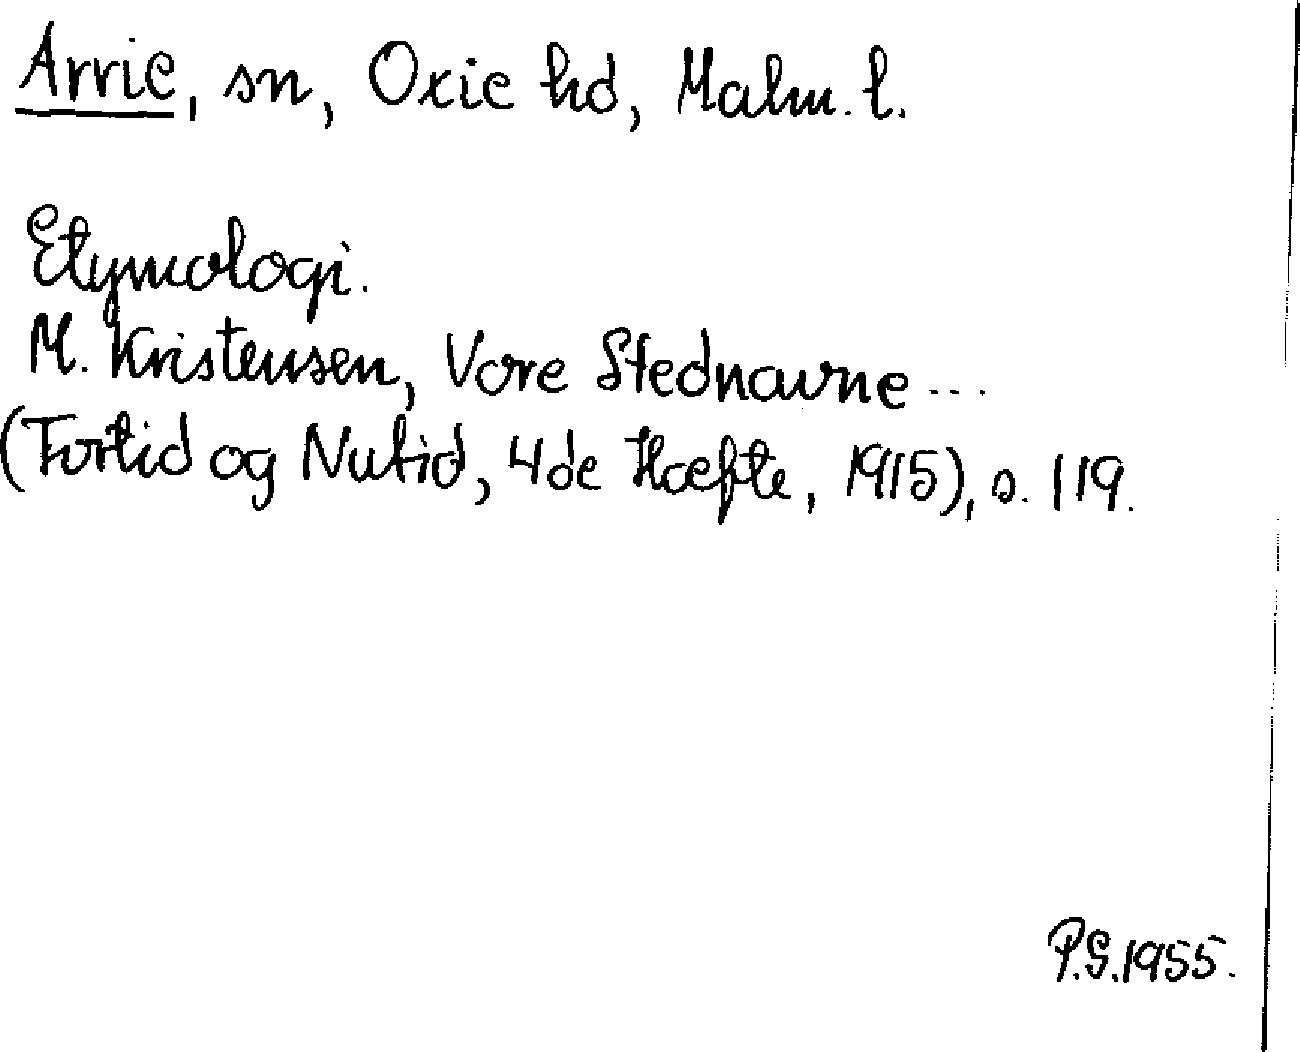 Arrie, sn, Oxie hd, Malm. l.
Etymologi.
M. Kristensen, Vore Stednavne ...
(Fortid og Nutid, 4de Hæfte, 1915), s. 119.
P.G. 1955.